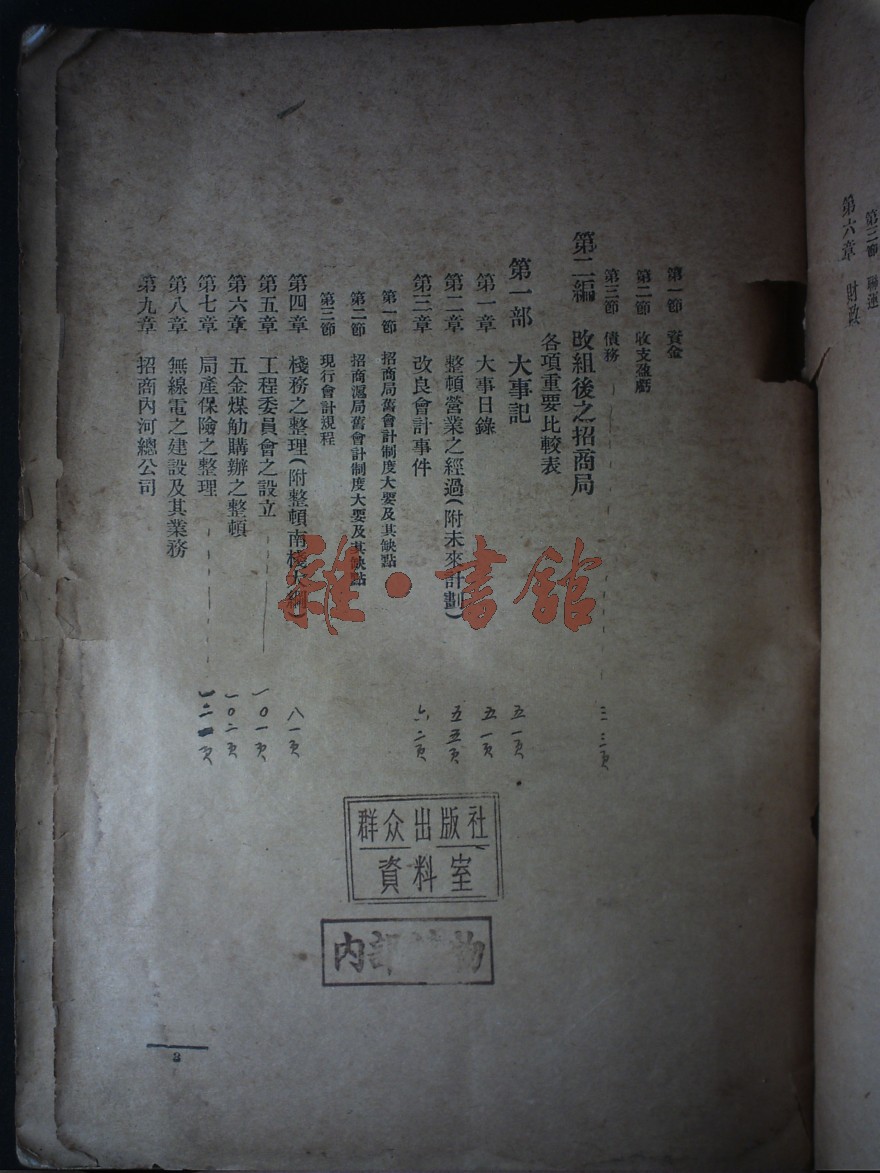 第三節 聯運
第六章 財政
第一節 資金
第二節 收支盈虧
第三節 債務 三三頁
第二編 改組後之招商局
各項重要比較表
第一部 大事記 五一頁
第一章 大事日錄 五一頁
第二章 整頓營業之經過(附未來計劃) 五五頁
第三章 改良會計事件 六二頁
第一節 招商局舊會計制度大要及其缺點
第二節 招商滬局舊會計制度大要及其缺點
第三節 現行會計規程
第四章 棧務之整理(附整頓南棧大綱) 八一頁
第五章 工程委員會之設立 一〇一頁
第六章 五金煤觔購辦之整頓 一〇二頁
第七章 局產保險之整理
第八章 無線電之建設及其業務
第九章 招商內河總公司
雜·書館
群众出版社
資料室
内部 物
3